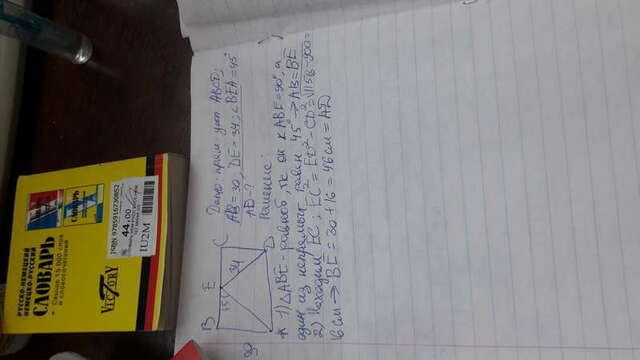 РУССКО-НЕМЕЦКИЙ
НЕМЕЦКО-РУССКИЙ
СЛОВАРЬ
Свыше 15 000 слов
и словосочетаний
СЛОВАРЬ
VICTORY
ISBN 9785916730852
44.00
IU2M
B E C
45
34
30
D
Дано: прям-уг ABCD;
AB=30, DE-34; ∠BEA=45°
AD-?
Решение:
1) △ABE - равноб, тк он к ABE=90°, а
один из непрямых равен 45° → AB=BE
2) Находим EC; EC²=ED²-CD²=√1156-900=
16 см → BE = 30+16=46см=AD